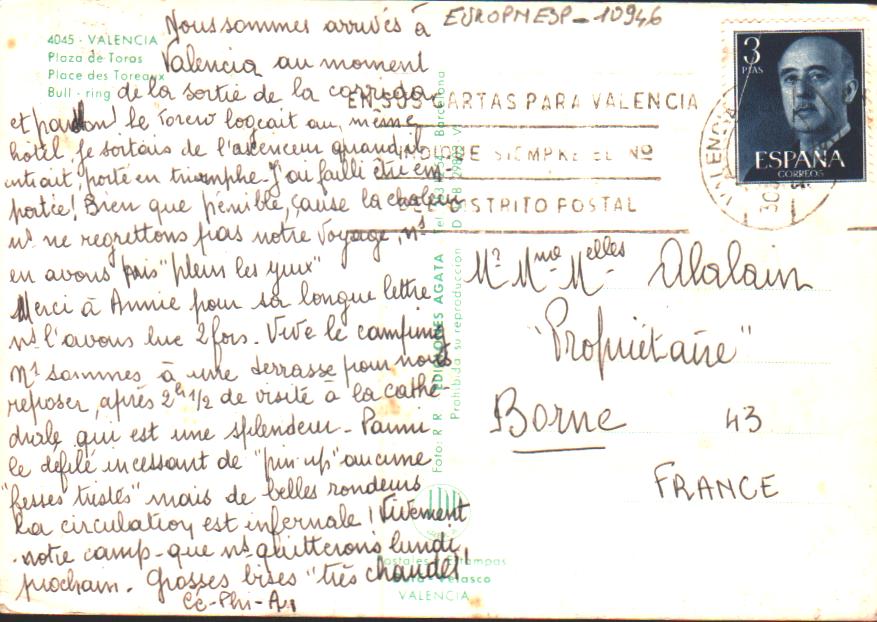 EUROPMESP-10946
4045 - VALENCIA
Plaza de Toros
Place des Toreaux
Bull - ring
Nous sommes arrivés à
Valencia au moment
de la sortie de la corrida
et pardon! le Torero logeait au même
hôtel, je sortais de l'ascenceur quand il
entrait, porté en triomphe. J'ai failli être em-
portée! Bien que pénible, cause la chaleur
ns ne regrettons pas notre voyage, ns
en avons pris "plein les yeux"
Merci à Annie pour sa longue lettre
ns l'avons lue 2 fois. Vive le camping
Ns sommes à une terrasse pour nous
reposer, après 2h 1/2 de visite à la cathé
drale qui est une splendeur. Parmi
le défilé incessant de "pin-up" aucune
"fesses tristes" mais de belles rondeurs
La circulation est infernale! Vivement
notre camp que ns quitterons lundi
prochain. Grosses bises "très chaudes"!
Cé-Phi-An
Foto: R. R. EDICIONES AGATA
Prohibida su reproduccion
Barcelona
Postales Estampas
Velasco
VALENCIA
EN SUS CARTAS PARA VALENCIA
INDIQUE SIEMPRE EL Nº
DEL DISTRITO POSTAL
VALENCIA
3
PTAS
ESPAÑA
CORREOS
Mr Mme Melles Alalain
"Propriétaire"
Borne 43
FRANCE